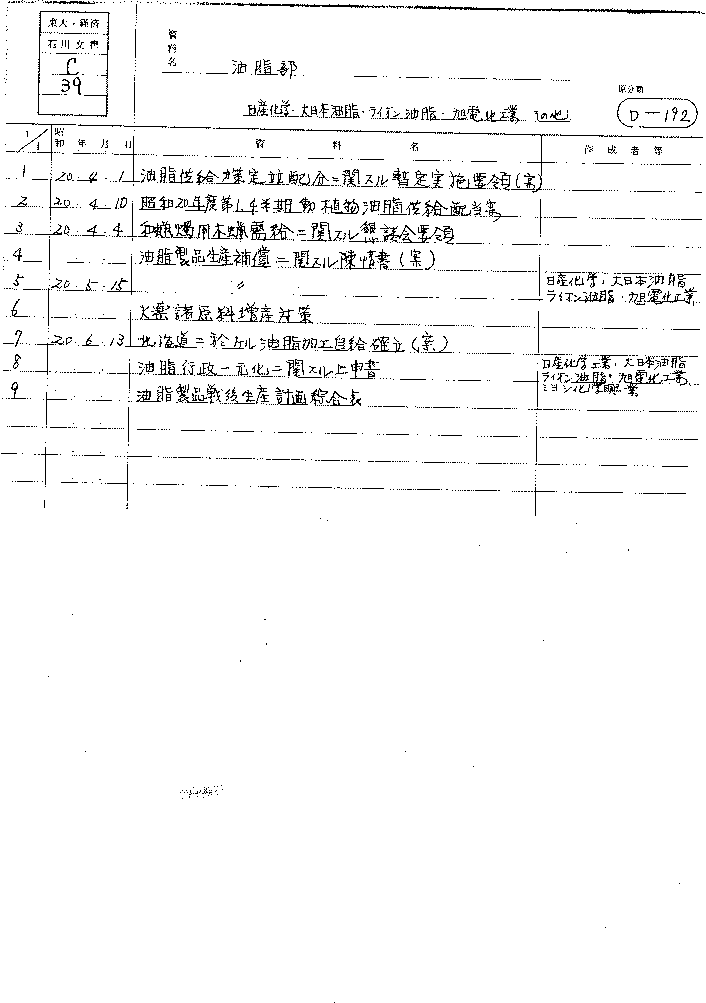 東大・経済
石川文書
C
39
資料名 油脂部
日産化学・大日本油脂・ライオン油脂・旭電化工業 その他
原分類
D-192
1/1 昭和 年 月 日 資料名 作成者等
1 20 4 1 油脂供給力策定並配分ニ関スル暫定実施要領(案)
2 20 4 10 昭和20年度第1.4半期動植物油脂供給配当案
3 20 4 4 和蝋燭用木蝋需給ニ関スル懇談会要領
4 油脂製品生産補償ニ関スル陳情書(案)
5 20 5 15 〃 日産化学・大日本油脂
ライオン油脂・旭電化工業
6 火薬諸原料増産対策
7 20 6 13 北海道ニ於ケル油脂加工自給確立(案)
8 油脂行政一元化ニ関スル上申書 日産化学工業・大日本油脂
ライオン油脂・旭電化工業
ミヨシ化学興業
9 油脂製品戦後生産計画綜合表